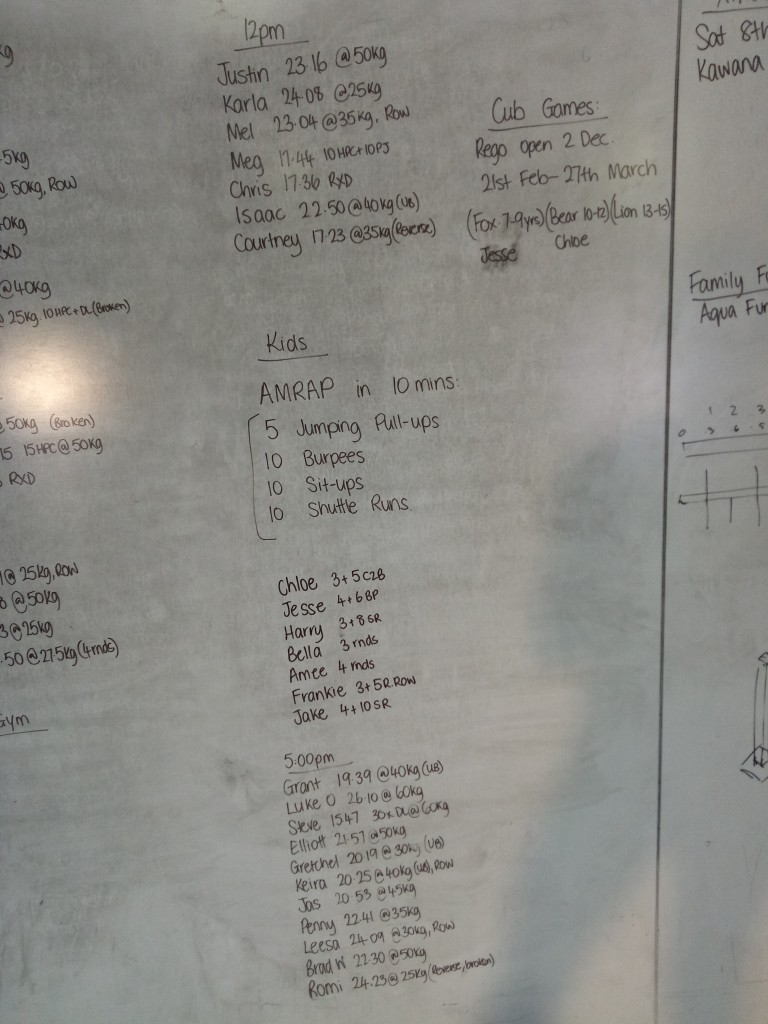 kg
5kg
@ 50kg, ROW
0kg
RXD
@40kg
@ 25kg 10HPC+DL(Broken)
@ 50kg (Broken)
15 15HPC@50kg
RXD
@ 25kg, ROW
@50kg
3@25kg
.50@27.5kg(4rnds)
Gym
12pm
Justin 23.16 @50kg
Karla 24.08 @25kg
Mel 23.04 @35kg, Row
Meg 17.44 10HPC+10PJ
Chris 17.36 RXD
Isaac 22.50@40kg(UB)
Courtney 17.23 @35kg(Reverse)
Cub Games:
Rego open 2 Dec.
21st Feb-27th March
(Fox 7-9yrs)(Bear 10-12)(Lion 13-15)
Jesse Chloe
Kids
AMRAP in 10 mins:
5 Jumping Pull-ups
10 Burpees
10 Sit-ups
10 Shuttle Runs.
Chloe 3+5C2B
Jesse 4+6BP
Harry 3+8SR
Bella 3 rnds
Amee 4 rnds
Frankie 3+5R.ROW
Jake 4+10SR
5:00pm
Grant 19.39 @40kg(UB)
Luke O 26.10@60kg
Steve 15.47 30xDL@60kg
Elliott 21.57 @50kg
Gretchel 20.19 @30kg (UB)
Keira 20.25@40kg(UB),ROW
Jas 20.53 @45kg
Penny 22.41 @35kg
Leesa 24.09 @30kg, ROW
Brad W 22.30 @50kg
Romi 24.23@25kg(Reverse,broken)
Sat 8th
Kawana
Family
Aqua Fun
1 2 3
0 3 6